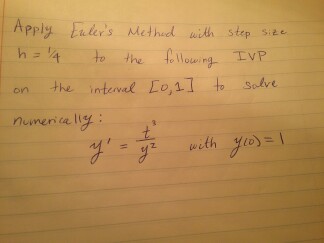 Apply Euler's Method with step size
h = 1/4 to the following IVP
on the interval [0,1] to solve
numerically:
y' = t³/y² with y(0) = 1